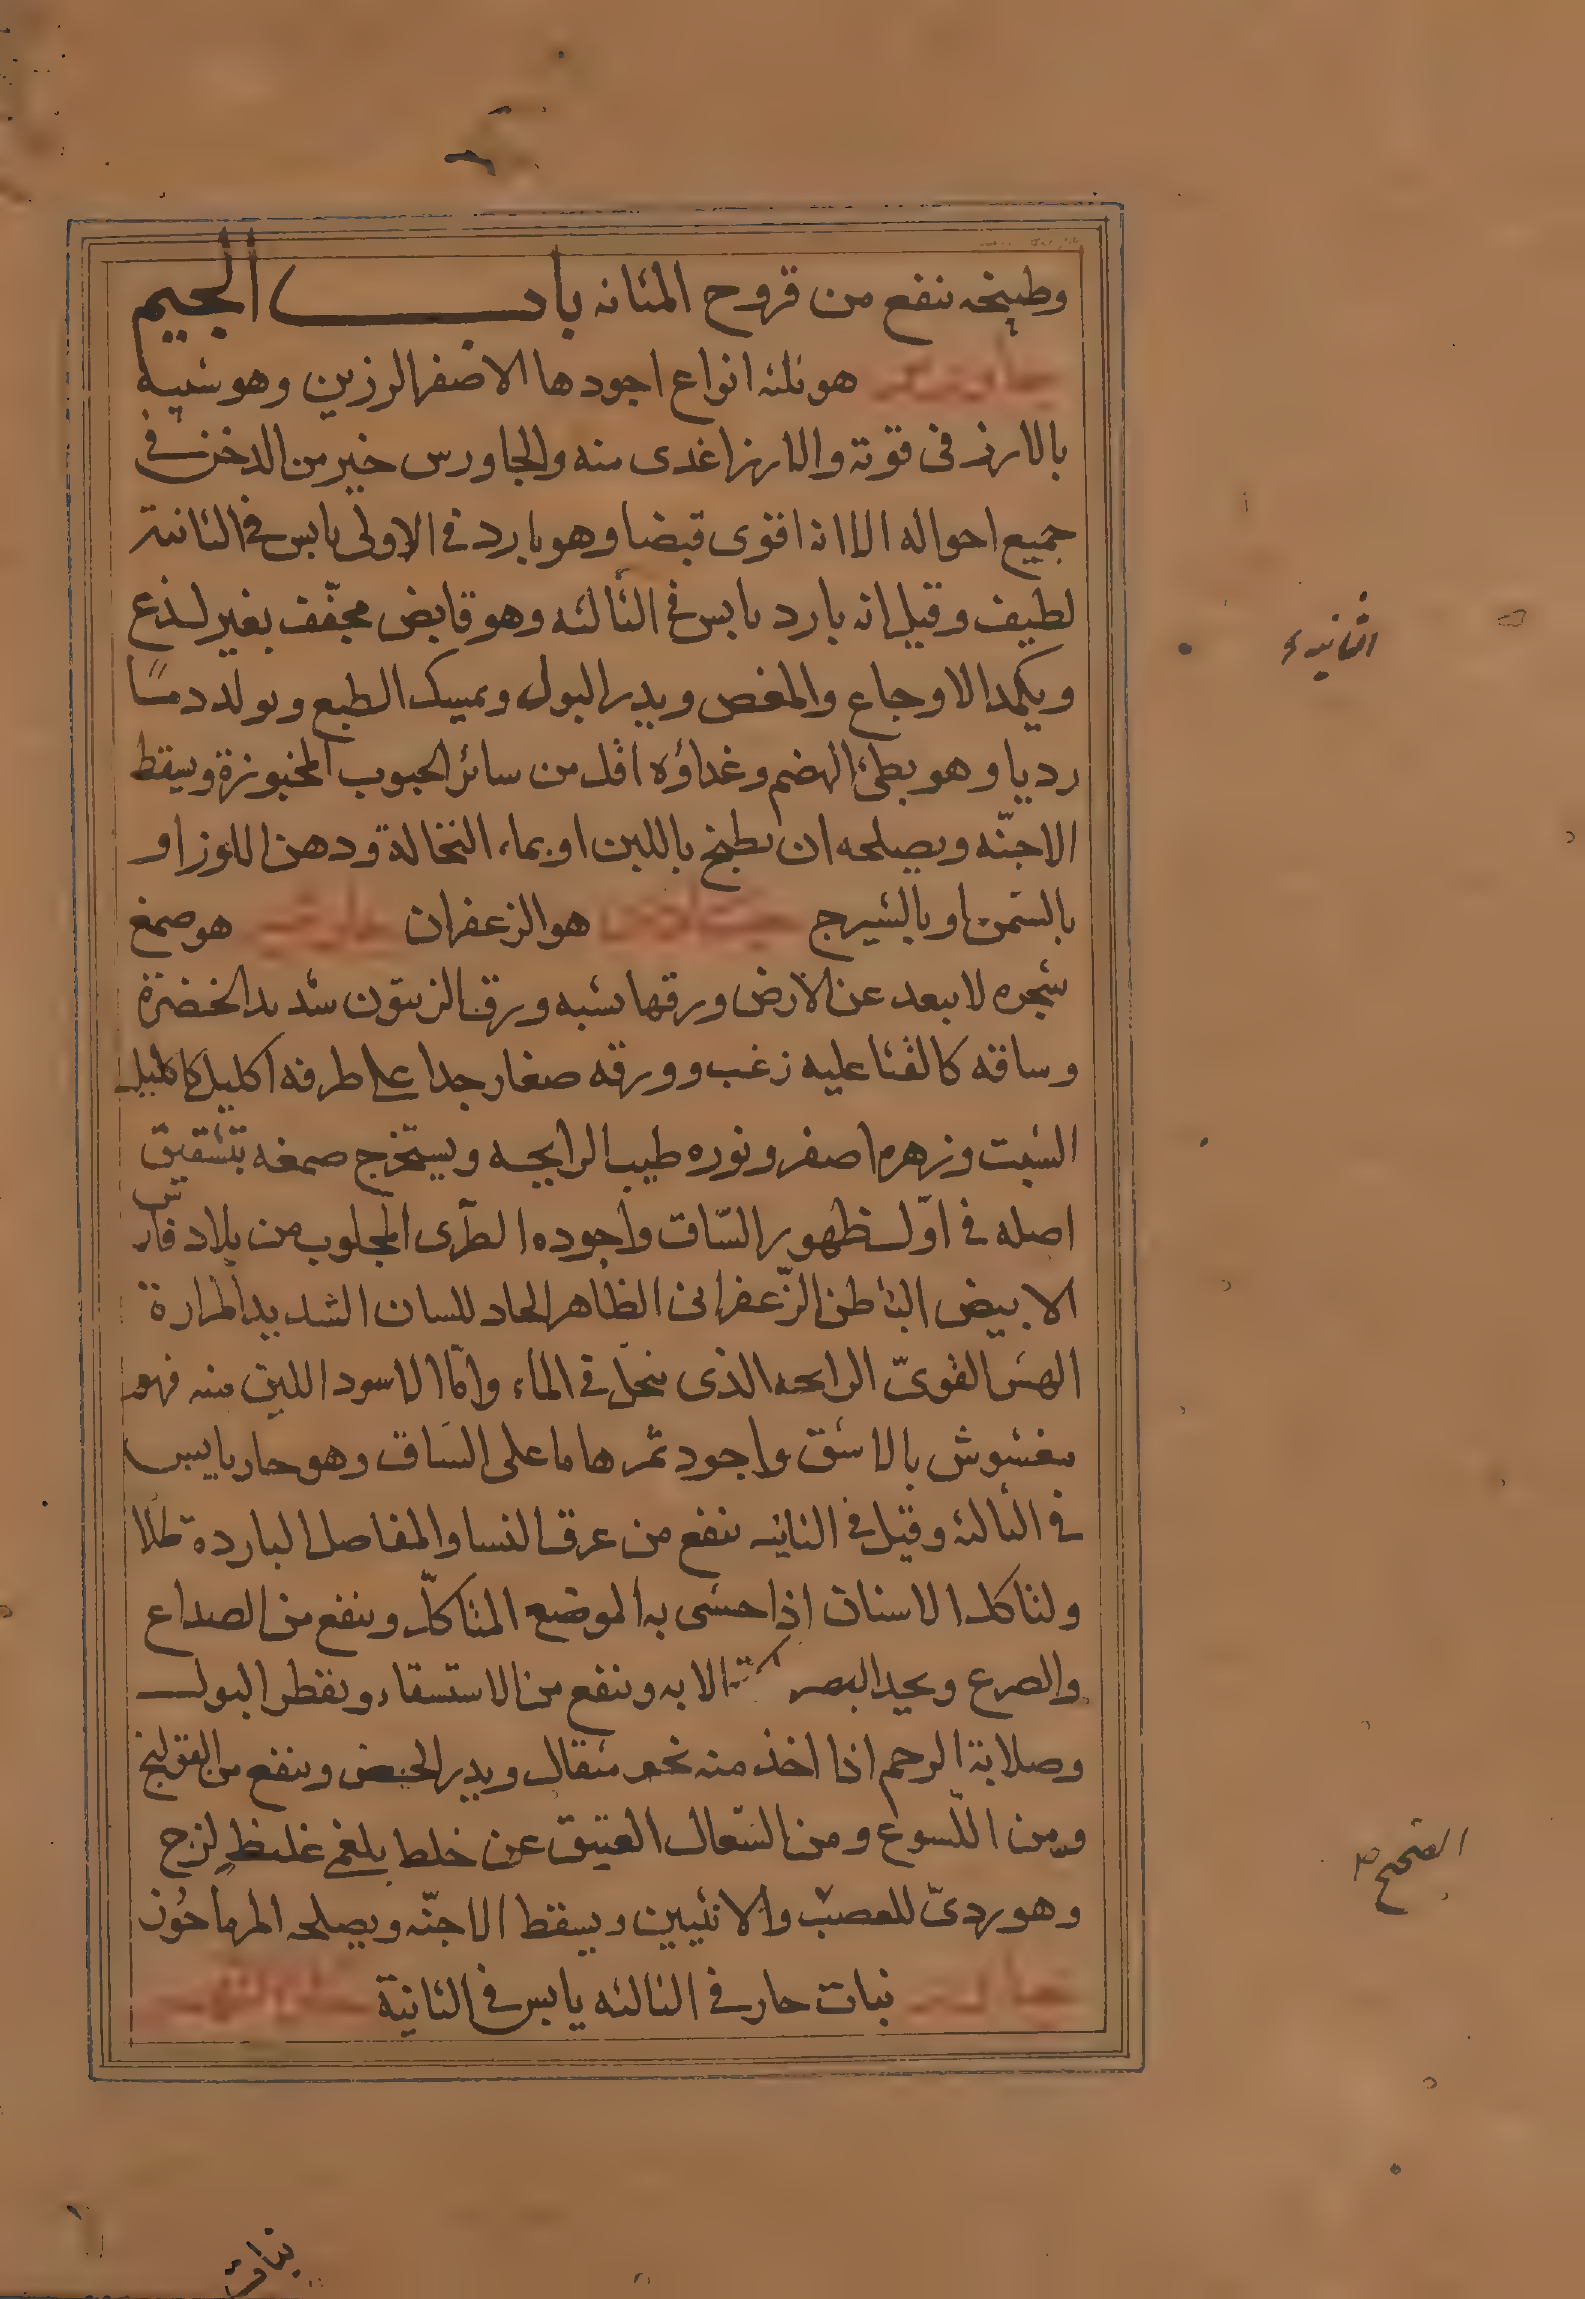 وطبيخه ينفع من قروح المثانه باب الجيم
جاورس هو ثلثه انواع اجودها الاصفر الرزين وهو شبيه
بالارز فى قوته والارز اغدى منه والجاورس خير من الدخن فى
جميع احواله الا انه اقوى قبضا وهو بارد فى الاولى يابس فى الثانية
لطيف وقيل انه بارد يابس فى الثالثه وهو قابض مجفّف بغير لذع
ويكمد الاوجاع والمغص ويدر البول ويمسك الطبع ويولد دمًا
رديا وهو بطئ الهضم وغداؤه اقل من سائر الحبوب المخبوزة ويسقط
الاجنّه ويصلحه ان يطبخ باللبن او بماء النخالة ودهن اللوز او
بالسّمن او بالشيرج هو الزعفران هو صمغ
شجره لا يبعد عن الارض ورقها يشبه ورق الزيتون شديد الخضرة
وساقه كالقثا عليه زغب وورقه صغار جدا على طرفه اكليل كاكليل
الشبت وزهره اصفر ونوره طيب الرايحه ويستخرج صمغه بتشقيق
اصله فى اوّل ظهور السّاق واجوده الطرى المجلوب من بلاد فارس
الابيض الباطن الزّعفرانى الظاهر الحاد للسان الشديد المرارة
الهش القوىّ الرايحه الذى ينحلّ فى الماء وامّا الاسود اللين منه فهو
مغشوش بالاشق واجود ثمرها ما على السّاق وهو حار يابس
فى الثالثه وقيل فى الثانيه ينفع من عرق النسا والمفاصل الباردة طلا
ولتاكل الاسنان اذا حشى به الموضع المتاكّل وينفع من الصداع
والصرع ويحد البصر الا به وينفع من الاستسقاء وتقطر البول
وصلابة الرحم اذا اخذ منه نحو مثقال ويدر الحيض وينفع من القولنج
ومن اللّسوع ومن السّعال العتيق عن خلط بلغمى غليظ لزج
وهو ردىّ للعصب والانثيين ويسقط الاجنّه ويصلحه المرماحُوز
نبات حار فى الثالثه يابس فى الثانية
الثانيه
الصحيح